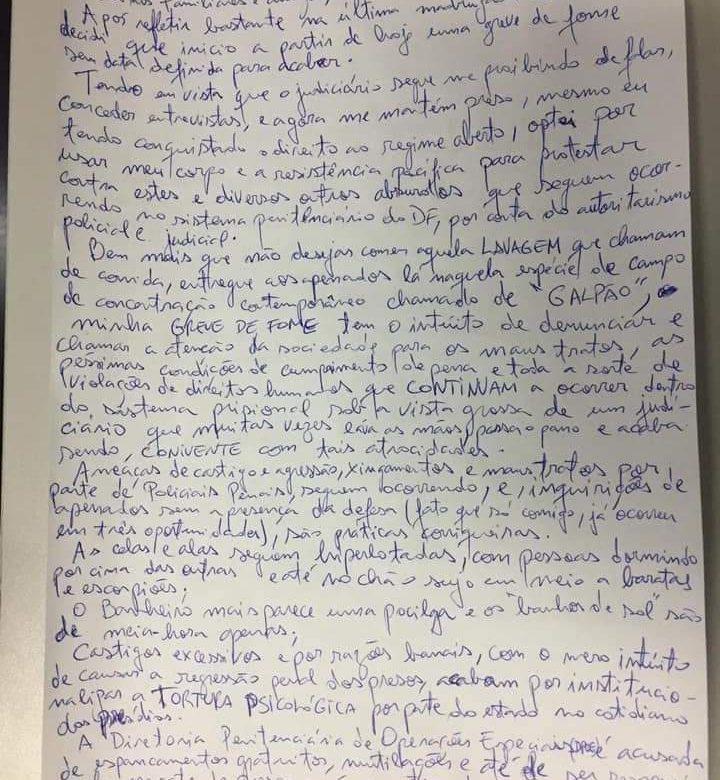 familiares e
Após refletir bastante na última madrug
decidi que inicio a partir de hoje uma greve de fome
sem data definida para acabar.
Tendo em vista que o judiciário segue me proibindo de falar,
conceder entrevistas, e agora me mantém preso, mesmo eu
tendo conquistado o direito ao regime aberto, optei por
usar meu corpo e a resistência pacífica para protestar
contra estes e diversos outros absurdos que seguem ocor-
rendo no sistema penitenciário do DF, por conta do autoritarismo
policial e judicial.
Bem mais que não desejar comer aquela LAVAGEM que chamam
de comida, entregue aos apenados lá naquela espécie de campo
de concentração contemporâneo chamado de "GALPÃO",
minha GREVE DE FOME tem o intuito de denunciar e
chamar a atenção da sociedade para os maus tratos, as
péssimas condições de cumprimento de pena e toda a sorte de
violações de direitos humanos que CONTINUAM a ocorrer dentro
do sistema prisional sob a vista grossa de um judi-
ciário que muitas vezes lava as mãos, passa o pano e acaba
sendo, CONIVENTE com tais atrocidades.
Ameaças de castigo e agressão, xingamentos e maus tratos por
parte de Policiais Penais, seguem ocorrendo, e, inquirições de
apenados sem a presença da defesa (fato que só comigo, já ocorreu
em três oportunidades), são práticas corriqueiras.
As celas e alas seguem hiperlotadas, com pessoas dormindo
por cima das outras e até no chão sujo em meio a baratas
e escorpiões;
O Banheiro mais parece uma pocilga e os "banhos de sol" são
de meia-hora apenas;
Castigos excessivos e por razões banais, com o mero intuito
de causar a regressão penal dos presos, acabam por institucio-
nalizar a TORTURA PSICOLÓGICA por parte do estado no cotidiano
dos presídios.
A Diretoria Penitenciária de Operações Especiais é acusada
de espancamentos gratuitos, mutilações e até de ser